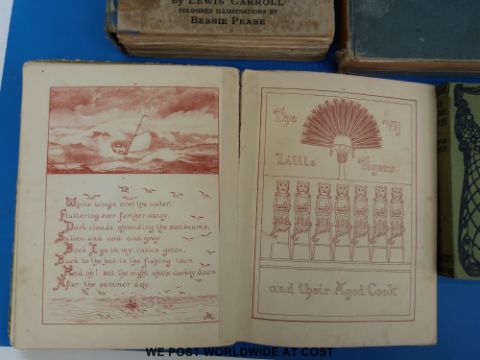 by LEWIS CARROLL
COLOURED ILLUSTRATIONS BY
BESSIE PEASE
White wings over the water,
Fluttering ever farther away,
Dark clouds shrouding the sunbeams,
Sullen and cold and grey.
Back I go in my calico gown,
Back to the hut in the fishing town
And oh! but the night shuts darkly down
After the summer day.
The vij
Little Tigers
and their Aged Cook
WE POST WORLDWIDE AT COST